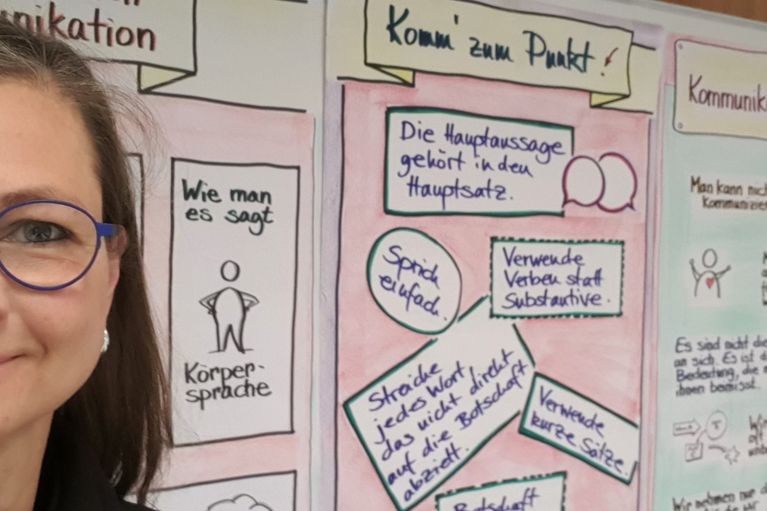 nikation
Wie man
es sagt
Körper-
sprache
Komm' zum Punkt!
Die Hauptaussage
gehört in den
Hauptsatz.
Sprich
einfach.
Verwende
Verben statt
Substantive.
Streiche
jedes Wort,
das nicht direkt
auf die Botschaft
abzielt.
Verwende
kurze Sätze.
Botschaft
Kommunik
Man kann nich
kommunizier
Es sind nicht die
an sich. Es ist d
Bedeutung, die
ihnen beimisst.
Wir nehmen nur d